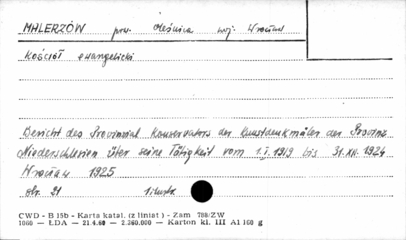 MALERZÓW pow. Oleśnica woj. Wrocław
Kościół ewangelicki
Bericht des Provinzial Konservators der Kunstdenkmäler der Provinz
Niederschlesien über seine Tätigkeit vom 1.I.1919 bis 31.XII.1924
Wrocław 1925
str. 21 1 ilustr.
CWD - B 15b - Karta katal. (z liniat) - Zam 788/ZW
1060 — ŁDA — 21.4.60 — 2.360.000 — Karton kl. III A1 160 g